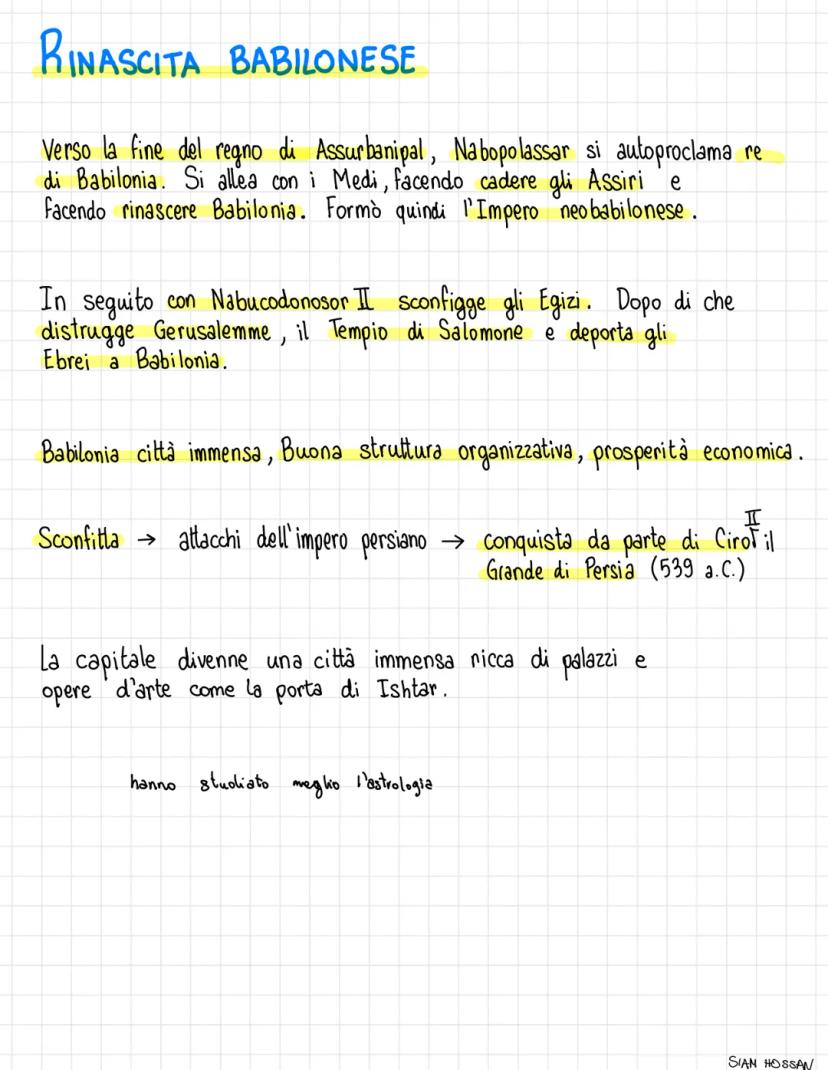 RINASCITA BABILONESE
Verso la fine del regno di Assurbanipal, Nabopolassar si autoproclama re
di Babilonia. Si allea con i Medi, facendo cadere gli Assiri e
facendo rinascere Babilonia. Formò quindi l'Impero neobabilonese.
In seguito con Nabucodonosor II sconfigge gli Egizi. Dopo di che
distrugge Gerusalemme, il Tempio di Salomone e deporta gli
Ebrei a Babilonia.
Babilonia città immensa, Buona struttura organizzativa, prosperità economica.
Sconfitta → attacchi dell'impero persiano → conquista da parte di Ciro II il
Grande di Persia (539 a.C.)
La capitale divenne una città immensa ricca di palazzi e
opere d'arte come la porta di Ishtar.
hanno studiato meglio l'astrologia
SIAM HOSSAN